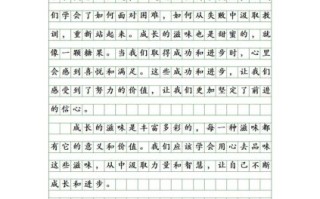 们学会了如何面对困难,如何从失败中汲取教
训,重新站起来。成长的滋味也是甜蜜的,就
像一颗糖果。当我们取得成功和进步时,心里
会感到喜悦和满足。这些成功和进步,让我们
感受到了努力的价值,让我们更加坚定了前进
的信心。
成长的滋味是丰富多彩的,每一种滋味都
有它的意义和价值。我们应该学会用心去品味
这些滋味,从中汲取力量和智慧,让自己不断
成长和进步。